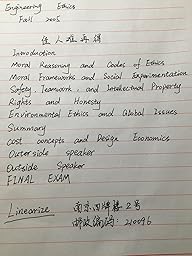 Engineering Ethics
Fall 2005
佳人难再得
Introduction
Moral Reasoning and Codes of Ethics
Moral Frameworks and Social Experimentation
Safety, Teamwork, and Intellectual Property
Rights and Honesty
Environmental Ethics and Global Issues
Summary
cost concepts and Design Economics
Outer side speaker
Outside Speaker
FINAL EXAM
Linearize 南京四牌楼2号
邮政编码: 210096